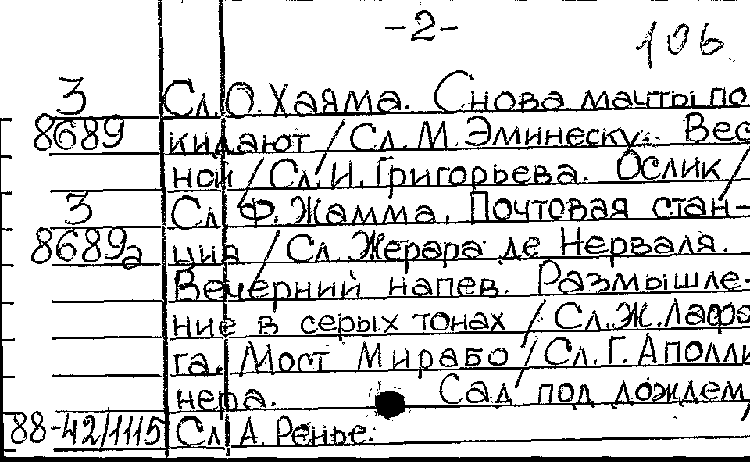 -2-
106
3 Сл. О. Хаяма. Снова мачты по
8689 кидают / Сл. М. Эминеску. Вес
ной / Сл. И. Григорьева. Ослик /
3 Сл. Ф. Жамма. Почтовая стан-
8689а ция / Сл. Жерара де Нерваля.
Вечерний напев. Размышле-
ние в серых тонах / Сл. Ж. Лафо
га. Мост Мирабо / Сл. Г. Аполли
нера. Сад под дождем /
88-42/1115 Сл. А. Ренье.